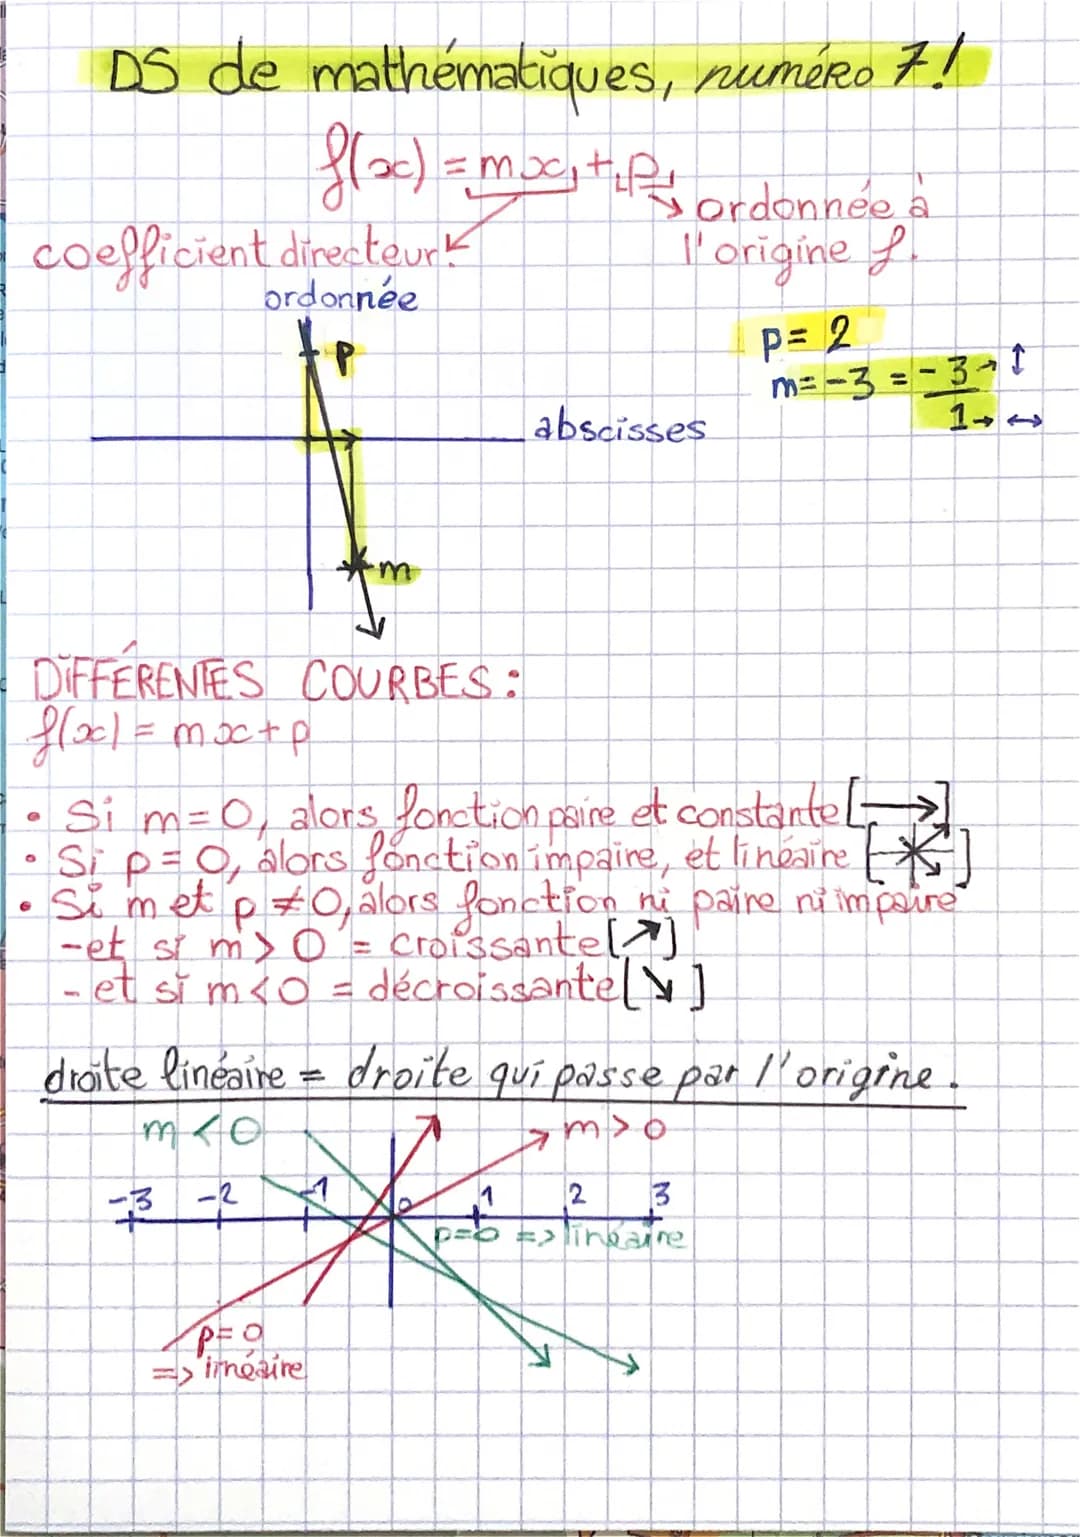 DS de mathématiques, numéro 7!
f(x) = mx + p
ordonnée à
l'origine f.
coefficient directeur.
ordonnée
p
p = 2
m = -3 = -3
1
abscisses
m
DIFFÉRENTES COURBES :
f(x) = mx + p
• Si m = 0, alors fonction paire et constante [→]
• Si p = 0, alors fonction impaire, et linéaire [ ]
• Si m et p ≠ 0, alors fonction ni paire ni impaire
- et si m > 0 = croissante [↗]
- et si m < 0 = décroissante [↘]
droite linéaire = droite qui passe par l'origine.
m < 0
m > 0
-3 -2 -1 0 1 2 3
p=0 => linéaire
p = 0
=> linéaire